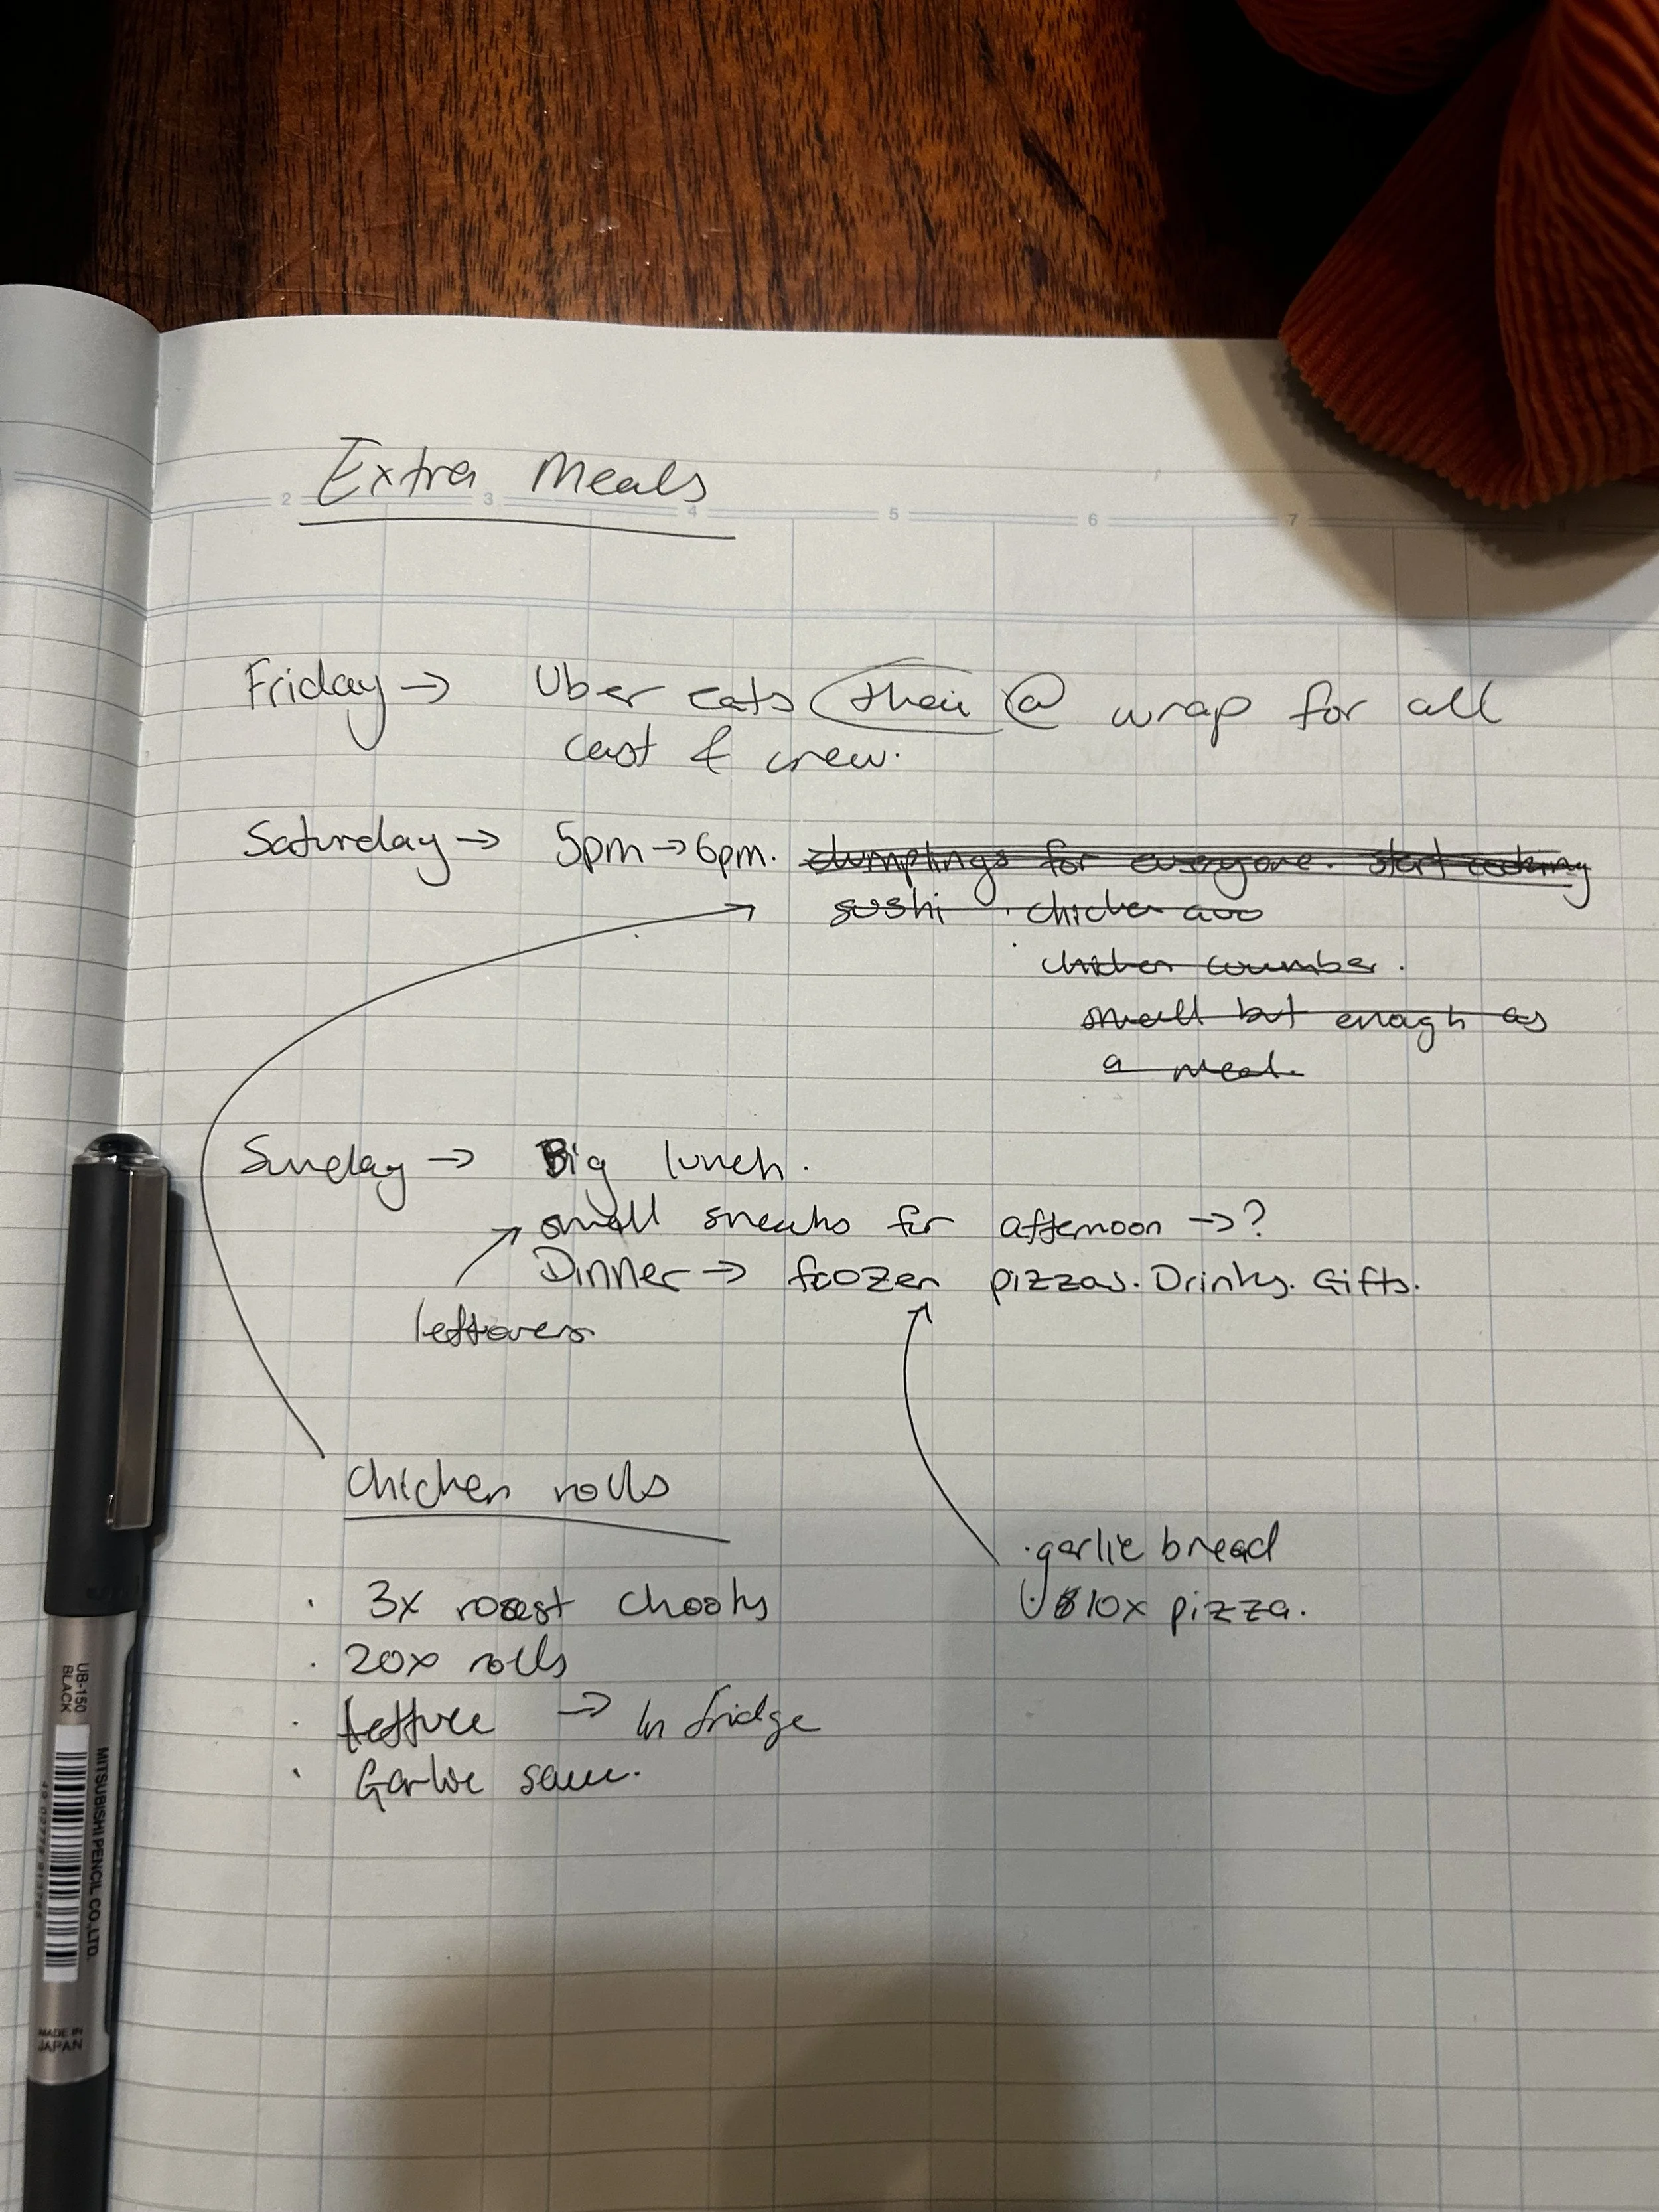 Extra Meals
2 3 4 5 6 7 8
Friday → Uber eats thai @ wrap for all
cast & crew.
Saturday → 5pm → 6pm. dumplings for everyone. start cooking
sushi · chicken avo
· chicken cucumber.
small but enough as
a meal.
Sunday → Big lunch.
small snacks for afternoon → ?
Dinner → frozen pizzas. Drinks. Gifts.
leftovers
chicken rolls
· garlic bread
· 3x roast chooks
· 10x pizza.
· 20x rolls
· lettuce → in fridge
· Garlic sauce.
UB-150
BLACK
MITSUBISHI PENCIL CO.,LTD.
MADE IN
JAPAN